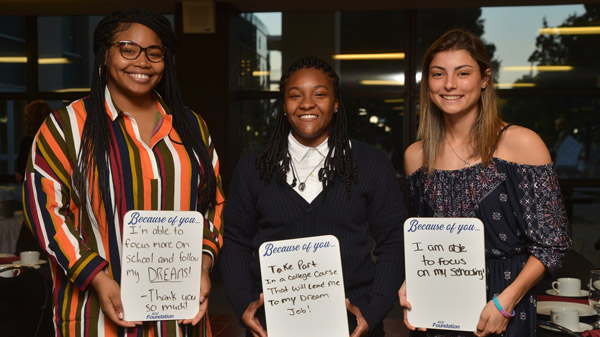 Because of you...
I'm able to
focus more on
school and
follow my
DREAMS!
- Thank you
so much!
Foundation
Because of you...
Take Part
In a College Course
That will Lead me
To my Dream
Job!
Because of you...
I am able
to focus
on my Schooling!
Foundation